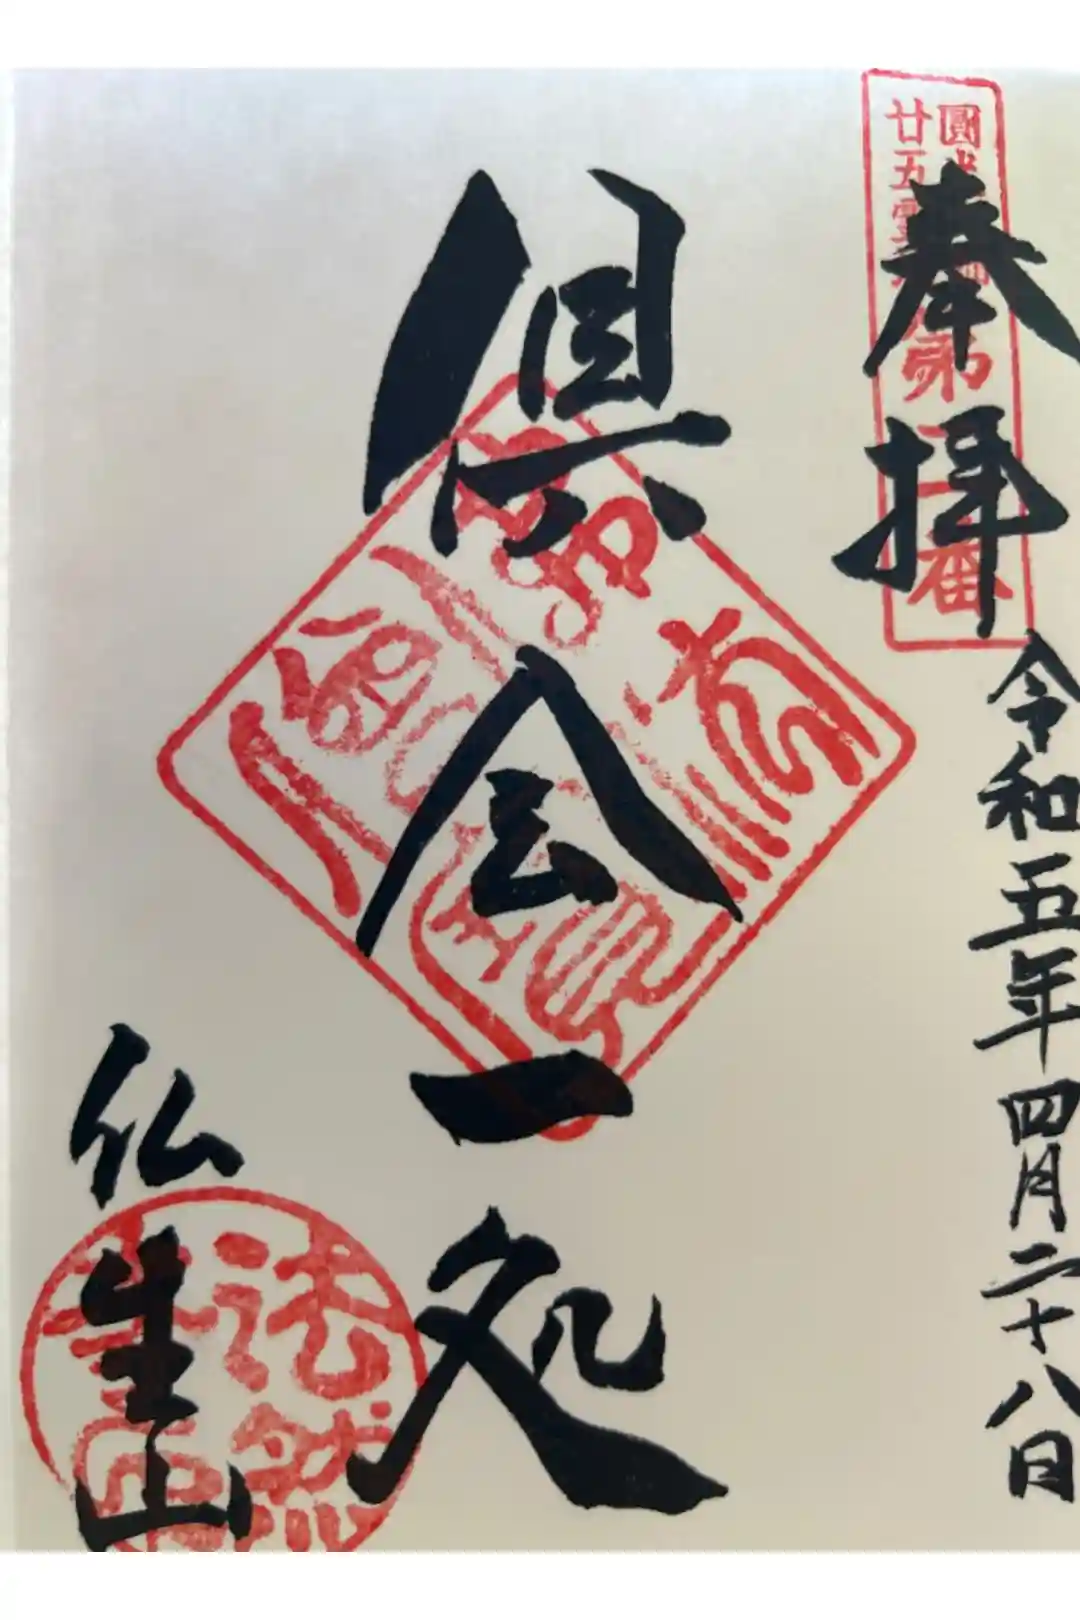 奉拝
令和五年四月二十八日
倶会一処
仏生山
圓光
廿五霊
第二番
法然